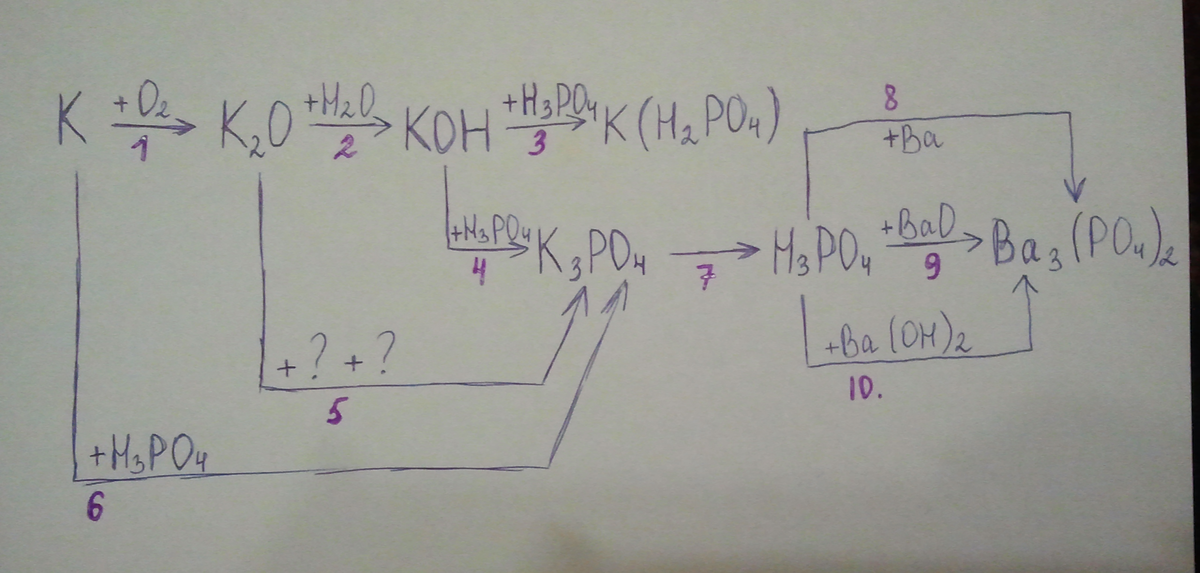 K +O₂ 1 K₂O +H₂O 2 KOH +H₃PO₄ 3 K(H₂PO₄) 8 +Ba
+H₃PO₄ 4 K₃PO₄ 7 H₃PO₄ +BaO 9 Ba₃(PO₄)₂
+ ? + ? 5 +Ba(OH)₂ 10.
+H₃PO₄
6